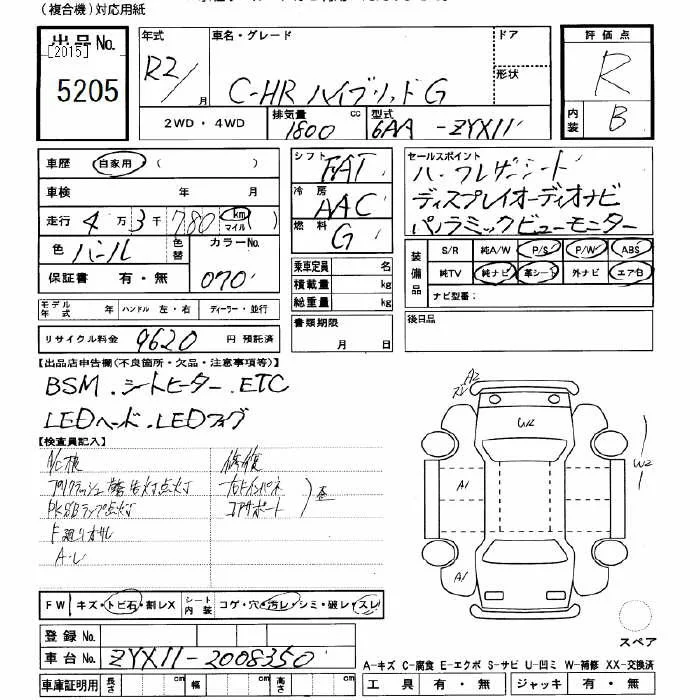 (複合機)対応用紙
出品No. [2015] 5205
年式 R2/ 月
車名・グレード C-HR ハイブリッド G
ドア
形状
評価点 R
内装 B
2WD・4WD
排気量 1800 cc
型式 6AA-ZYX11
車歴 自家用 ( )
車検 年 月
走行 4万3千780 km マイル
色 パール 色替 カラーNo. 070
保証書 有・無
モデル年式 年 ハンドル 左・右 ディーラー・並行
リサイクル料金 9620 円 預託済
シフト FAT
冷房 AAC
燃料 G
乗車定員 名
積載量 kg
総重量 kg
書類期限 月 日
セールスポイント
ハーフレザーシート
ディスプレイオーディオナビ
パノラミックビューモニター
装備品 S/R 純A/W P/S P/W ABS
純TV 純ナビ 革シート 外ナビ エア白
ナビ型番:
後日品
【出品店申告欄(不良箇所・欠品・注意事項等)】
BSM.シートヒーター.ETC
LEDヘード.LEDフォグ
【検査員記入】
プリクラッシュ警告灯点灯
PKSBランプ点灯
修復
コアサポート
歪
A2
W2
A1
A1
FW キズ・トビ石・割レX シート内装 コゲ・穴・汚レ・シミ・破レ・スレ
登録No.
車台No. ZYX11-2008350
車庫証明用 長さ cm 幅 cm 高さ cm
スペア
A-キズ C-腐食 E-エクボ S-サビ U-凹ミ W-補修 XX-交換済
工具 有・無 ジャッキ 有・無